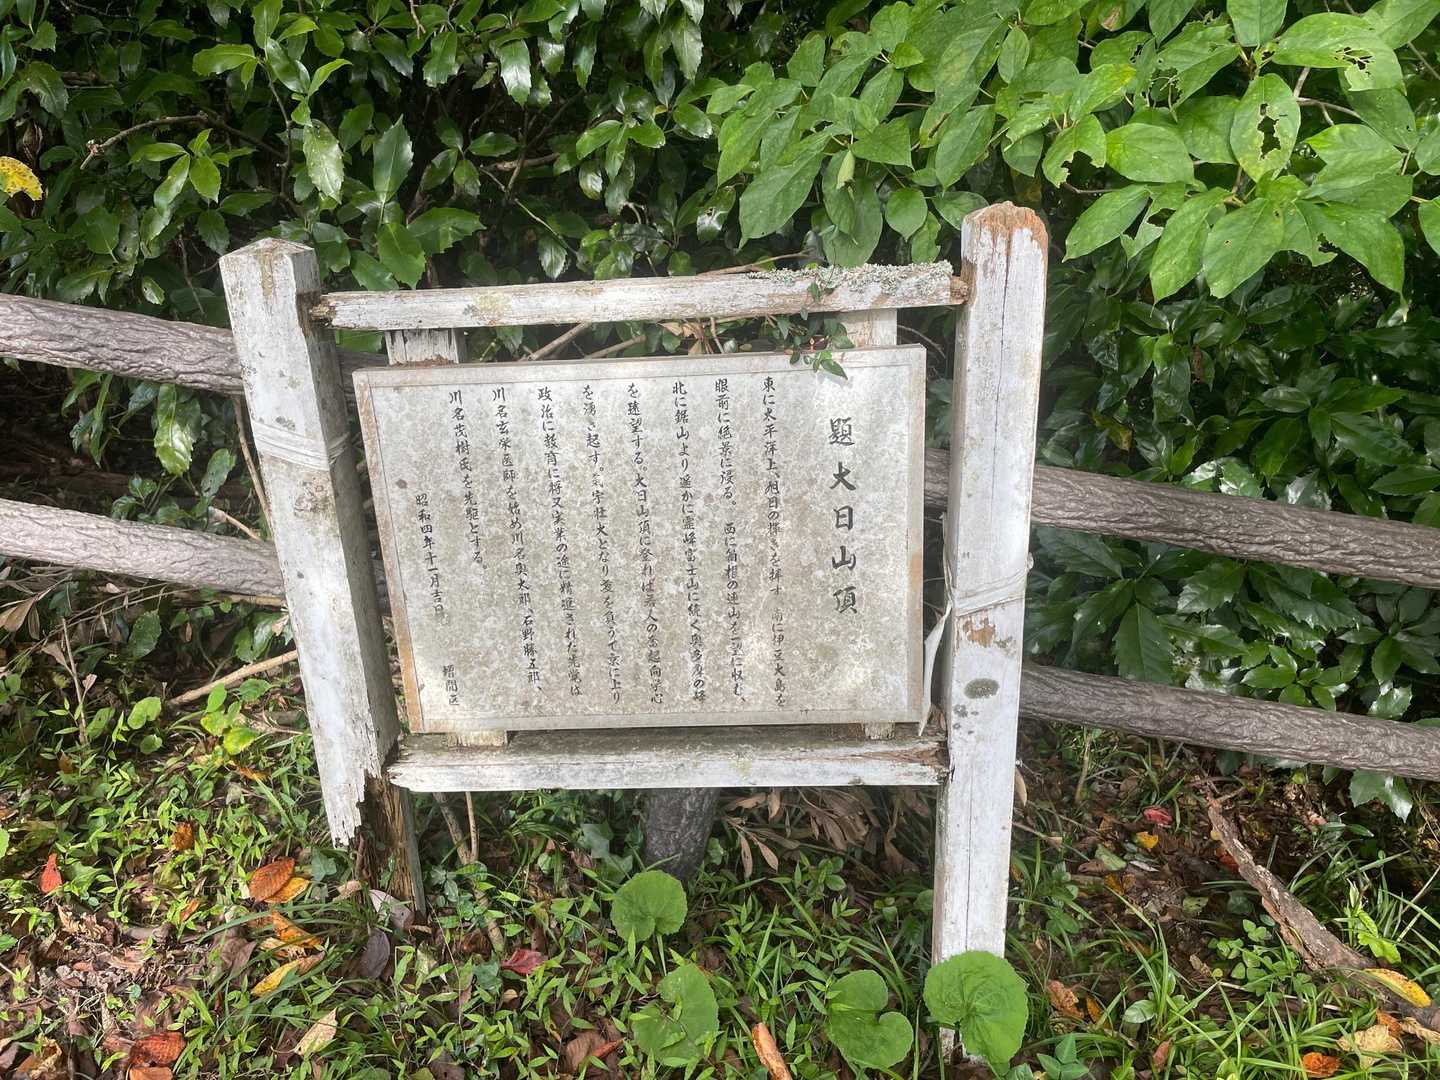 題大日山頂
東に太平洋上、旭日の輝きを拝す 南に伊豆大島を
眼前に絶景に浸る。 西に箱根の連山を一望に収む、
北に鋸山より遥かに霊峰富士山に続く奥多摩の峰
を遠望する。大日山頂に登れば若人の奮起向学心
を湧き起す。気宇壮大となり笈を負うて京に上り
政治に教育に将又実業の途に精進された先覚は
川名玄栄医師を始め川名奥太郎、石野勝五郎、
川名茂樹氏を先駆とする。
昭和四年十一月吉日
増間区